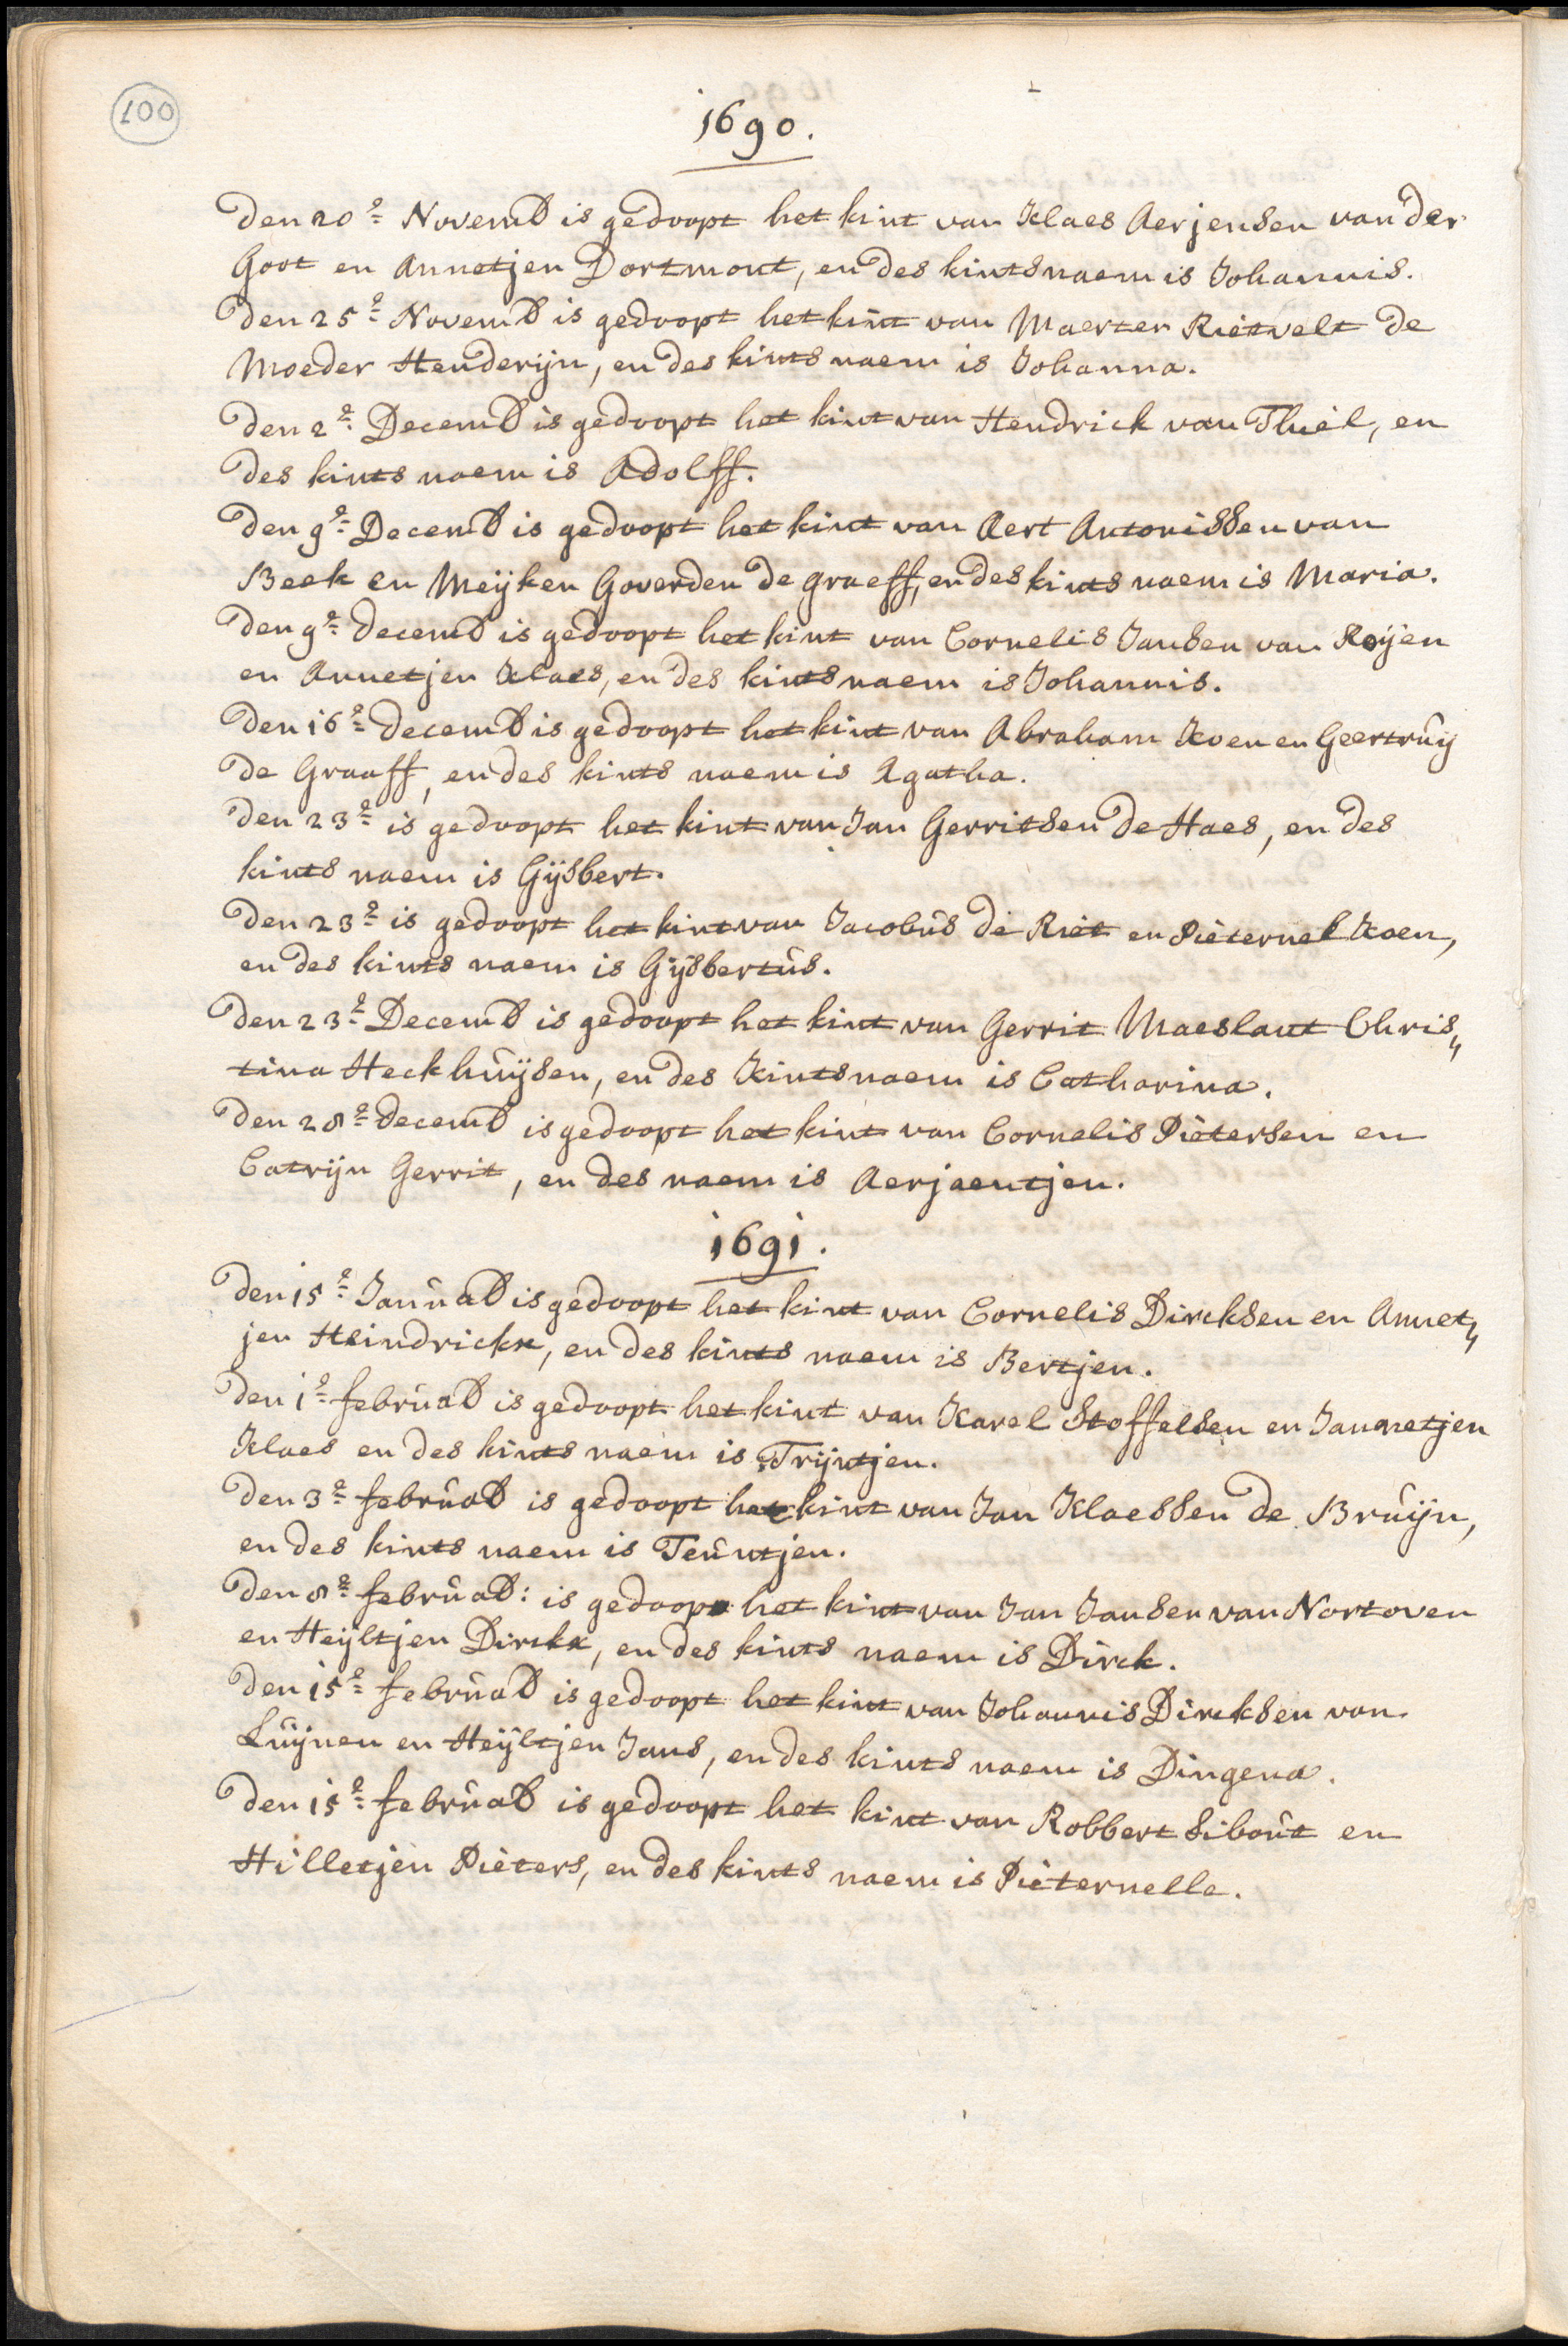 100
1690.
Den 20e Novemb is gedoopt het kint van Klaes Aerjensen van der
Goot en Annetjen Dortmont, en des kints naem is Johannis.
Den 25e Novemb is gedoopt het kint van Maerten Rietvelt de
Moeder Henderijn, en des kints naem is Johanna.
Den 2e Decemb is gedoopt het kint van Hendrick van Thuil, en
des kints naem is Adolff.
Den 9e Decemb is gedoopt het kint van Aert Antonissen van
Beek en Meijken Goverden de graeff, en des kints naem is Maria.
Den 9e decemb is gedoopt het kint van Cornelis Jansen van Roijen
en Annetjen Klaes, en des kints naem is Johannis.
Den 16e decemb is gedoopt het kint van Abraham Koen en Geertruij
de Graaff, en des kints naem is Agatha.
Den 23e is gedoopt het kint van Jan Gerritsen de Haes, en des
kints naem is Gijsbert.
Den 23e is gedoopt het kint van Jacobus de Riet en Pieternel Koen,
en des kints naem is Gijsbertus.
Den 23e Decemb is gedoopt het kint van Gerrit Maeslant Chris„
tina Heckhuijsen, en des kints naem is Catharina.
Den 28e decemb is gedoopt het kint van Cornelis Pietersen en
Catrijn Gerrit, en des naem is Aerjaentjen.
1691.
Den 15e Januab is gedoopt het kint van Cornelis Dircksen en Annet„
jen Heindrickx, en des kints naem is Bertjen.
Den 1e februab is gedoopt het kint van Karel Stoffelsen en Jannetjen
Klaes en des kints naem is Trijntjen.
Den 3e februab is gedoopt het kint van Jan Klaessen de Bruijn,
en des kints naem is Teuntjen.
Den 8e februab: is gedoopt het kint van Jan Jansen van Nortoven
en Heijltjen Dirckx, en des kints naem is Dirck.
Den 15e februab is gedoopt het kint van Johannis Dircksen van
Luijnen en Heijltjen Jans, en des kints naem is Dingena.
Den 15e februab is gedoopt het kint van Robbert Sibout en
Hilletjen Pieters, en des kints naem is Pieternelle.